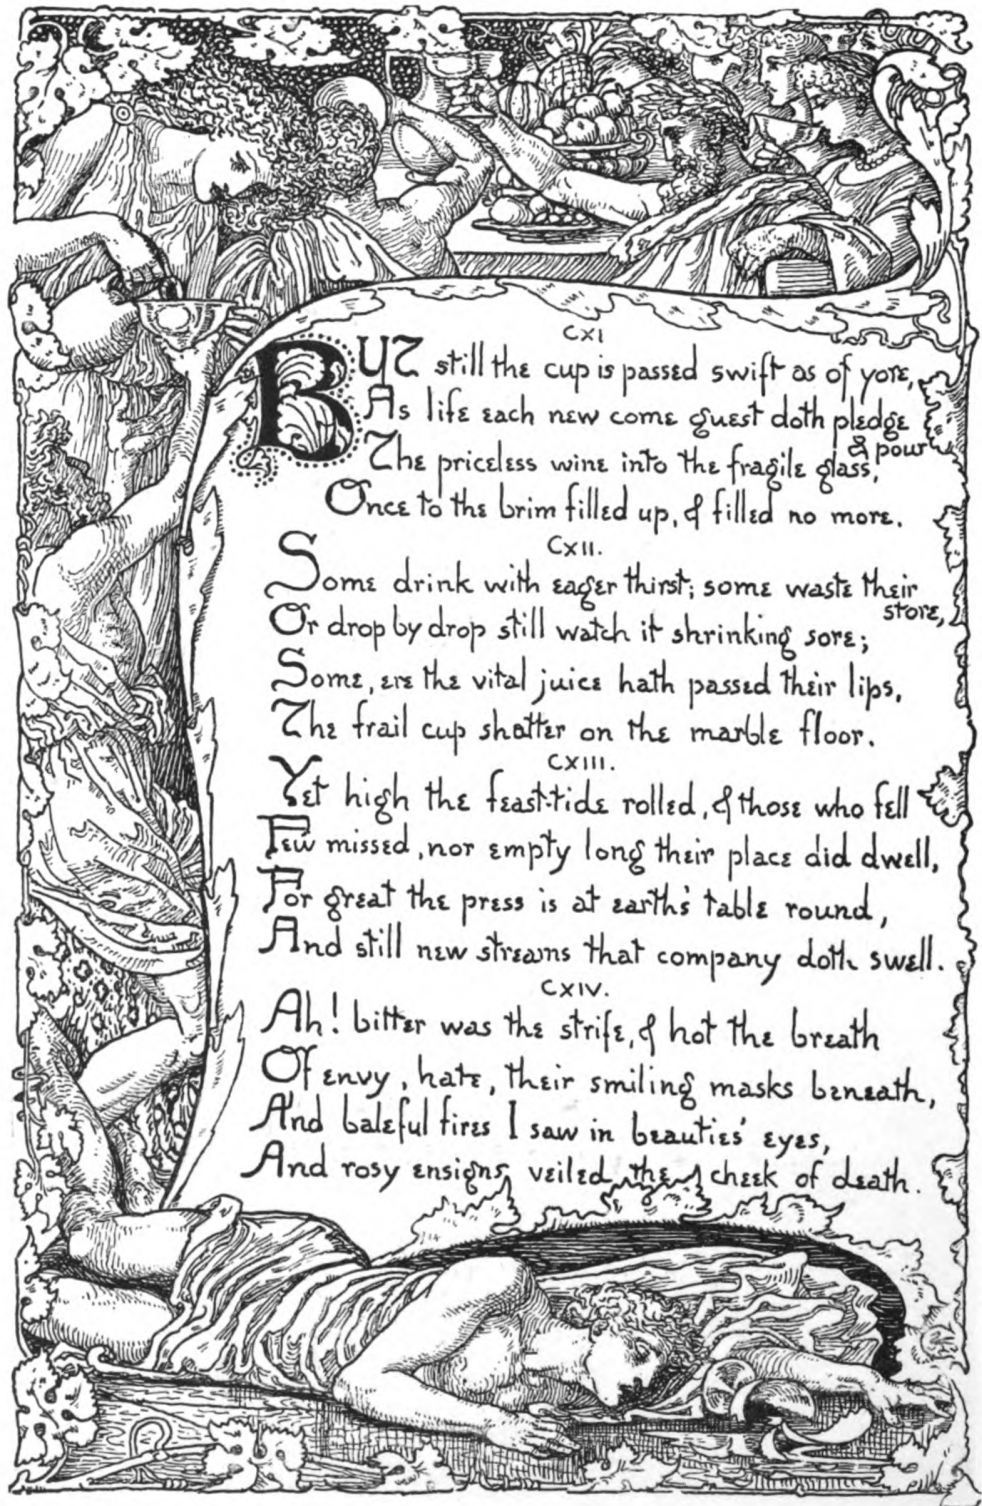 CXI
BUT still the cup is passed swift as of yore,
As life each new come guest doth pledge & pour
The priceless wine into the fragile glass,
Once to the brim filled up, & filled no more.
CXII.
Some drink with eager thirst; some waste their store,
Or drop by drop still watch it shrinking sore;
Some, ere the vital juice hath passed their lips,
The frail cup shatter on the marble floor.
CXIII.
Yet high the feast-tide rolled, & those who fell
Few missed, nor empty long their place did dwell,
For great the press is at earth's table round,
And still new streams that company doth swell.
CXIV.
Ah! bitter was the strife, & hot the breath
Of envy, hate, their smiling masks beneath,
And baleful fires I saw in beauties' eyes,
And rosy ensigns veiled the cheek of death.